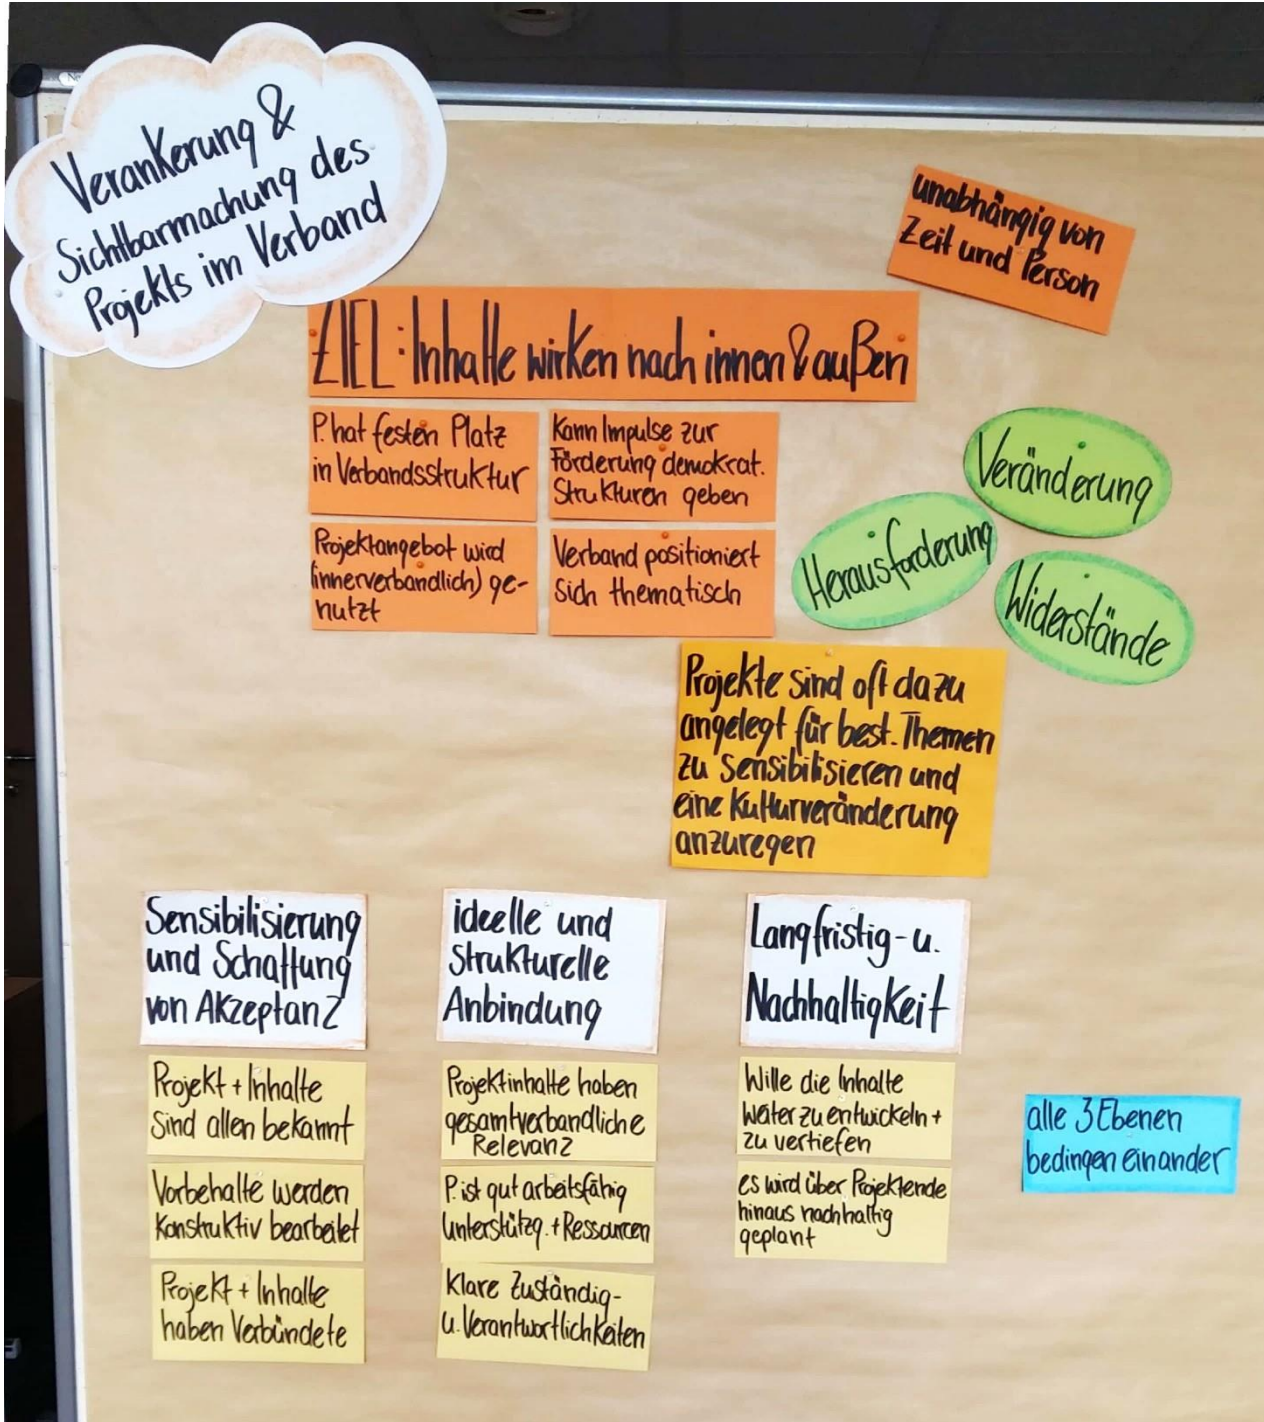 Verankerung &
Sichtbarmachung des
Projekts im Verband
unabhängig von
Zeit und Person
ZIEL: Inhalte wirken nach innen & außen
P. hat festen Platz
in Verbandsstruktur
Kann Impulse zur
Förderung demokrat.
Strukturen geben
Projektangebot wird
(innerverbandlich) ge-
nutzt
Verband positioniert
sich thematisch
Veränderung
Herausforderung
Widerstände
Projekte sind oft dazu
angelegt für best. Themen
zu sensibilisieren und
eine Kulturveränderung
anzuregen
Sensibilisierung
und Schaffung
von Akzeptanz
Projekt + Inhalte
sind allen bekannt
Vorbehalte werden
konstruktiv bearbeitet
Projekt + Inhalte
haben Verbündete
ideelle und
strukturelle
Anbindung
Projektinhalte haben
gesamtverbandliche
Relevanz
P. ist gut arbeitsfähig
Unterstützg. + Ressourcen
Klare Zuständig-
u. Verantwortlichkeiten
Langfristig- u.
Nachhaltigkeit
Wille die Inhalte
weiter zu entwickeln +
zu vertiefen
es wird über Projektende
hinaus nachhaltig
geplant
alle 3 Ebenen
bedingen einander